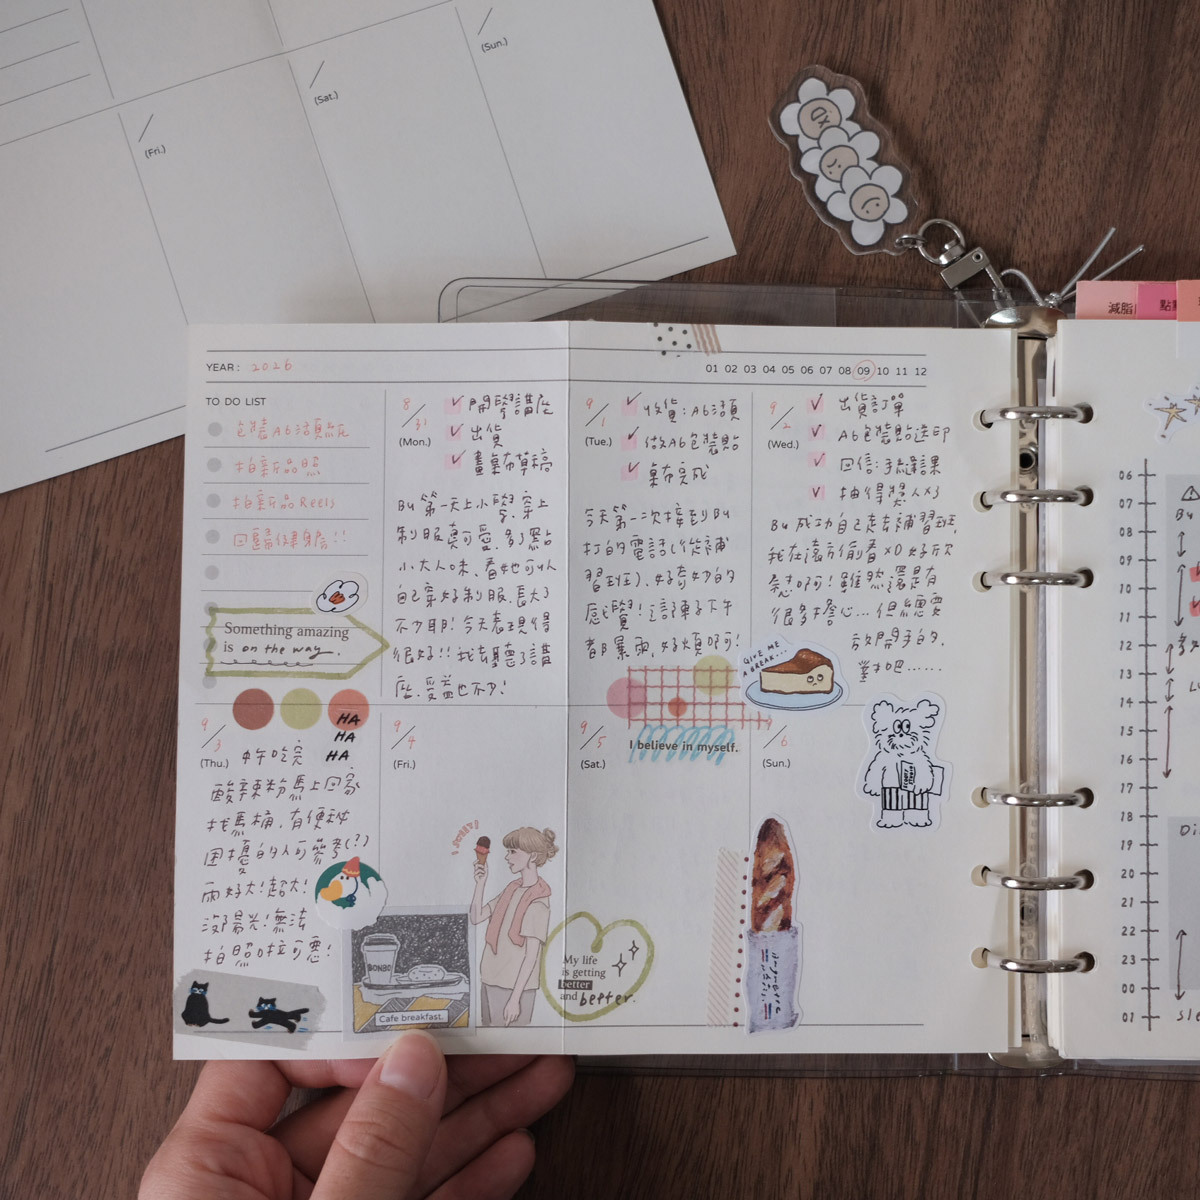 (Sun.)
(Sat.)
(Fri.)
減脂
YEAR: 2026
01 02 03 04 05 06 07 08 09 10 11 12
TO DO LIST
包裝A6活頁紙瓦
拍新品照
拍新品Reels
回歸健身房!!
Something amazing
is on the way.
8/31
(Mon.)
開學講座
出貨
畫菓布草稿
Bu 第一天上小學,穿上
制服真可愛,多了點
小大人味,看她可以
自己穿好制服,長大了
不少耶!今天表現得
很好!!我去聽了講
座,受益也不少!
9/1
(Tue.)
收貨:A6活頁
做A6包裝貼
菓布完成
今天第一次接到Bu
打的電話(從補
習班),好奇妙的
感覺!這陣子下午
都暴雨,好煩啊!
9/2
(Wed.)
出貨訂單
A6包裝貼送印
回信:手繪課
抽得獎人x3
Bu 成功自己走去補習班,
我在遠方偷看XD 好欣
慰啊!雖然還是有
很多擔心...但總要
放開手的,
對吧......
GIVE ME
A BREAK...
HA
HA
HA
9/3
(Thu.)
中午吃完
酸辣粉馬上回家
找馬桶,有便秘
困擾的人可參考(?)
雨好大!超大!
沒陽光!無法
拍照啦可惡!
9/4
(Fri.)
BONBO
Cafe breakfast.
My life
is getting
better
and better.
9/5
(Sat.)
I believe in myself.
9/6
(Sun.)
06
07
08
09
10
11
12
13
14
15
16
17
18
19
20
21
22
23
00
01
Bu